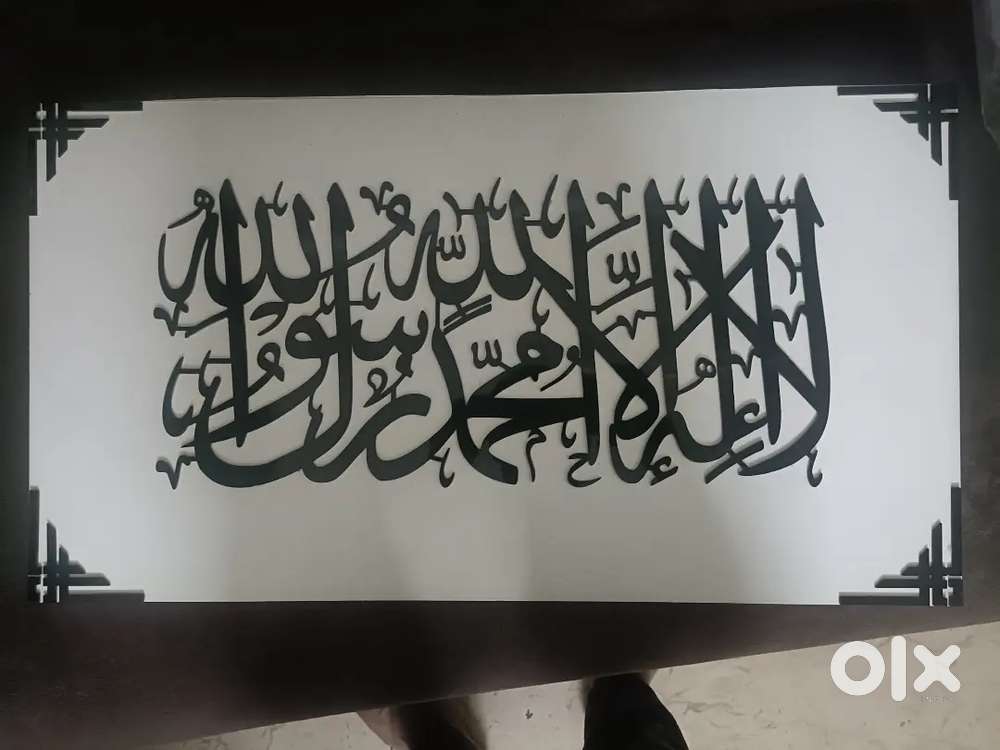 لا إله إلا الله محمد رسول الله
olx